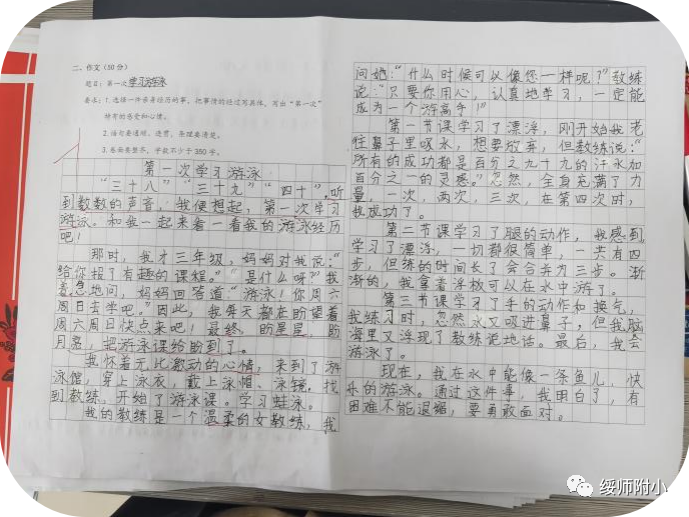 二、作文(50分)
题目:第一次学习游泳
要求:1.选择一件亲身经历的事,把事情的经过写具体,写出“第一次”
特有的感受和心情。
2.语句要通顺、连贯,条理要清楚。
3.卷面要整齐,字数不少于350字。
第一次学习游泳
“三十八”“三十九”“四十”,听
到数数的声音,我便想起,第一次学习
游泳。和我一起来看一看我的游泳经历
吧!
那时,我才三年级,妈妈对我说:“
给你报了有趣的课程。”“是什么呀?”我
着急地问,妈妈回答道:“游泳!你周六
周日去学吧。”因此,我每天都在盼望着
周六周日快点来吧!最终,盼星星,盼
月亮,把游泳课给盼到了。
我怀着无比激动的心情,来到了游
泳馆,穿上泳衣,戴上泳帽、泳镜,找
到教练,开始了游泳课。学习蛙泳。
我的教练是一个温柔的女教练,我
问她:“什么时候可以像您一样呢?”教练
说:“只要你用心,认真地学习,一定能
成为一个游高手!”
第一节课学习了漂浮,刚开始我老
往鼻子里吸水,想要放弃,但教练说:“
所有的成功都是百分之九十九的汗水加
百分之一的灵感。”忽然,全身充满了力
量,一次,两次,三次,在第四次时,
我成功了。
第二节课学习了腿的动作,我感到
学习了漂浮,一切都很简单,一共有四
步,但练的时间长了会合并为三步。渐
渐的,我拿着浮板可以在水中游了。
第三节课学习了手的动作和换气,
我练习时,忽然水又吸进鼻子,但我脑
海里又浮现了教练说地话。最后,我会
游泳了。
现在,我在水中能像一条鱼儿,快
乐的游泳。通过这件事,我明白了,有
困难不能退缩,要勇敢面对。
绥师附小